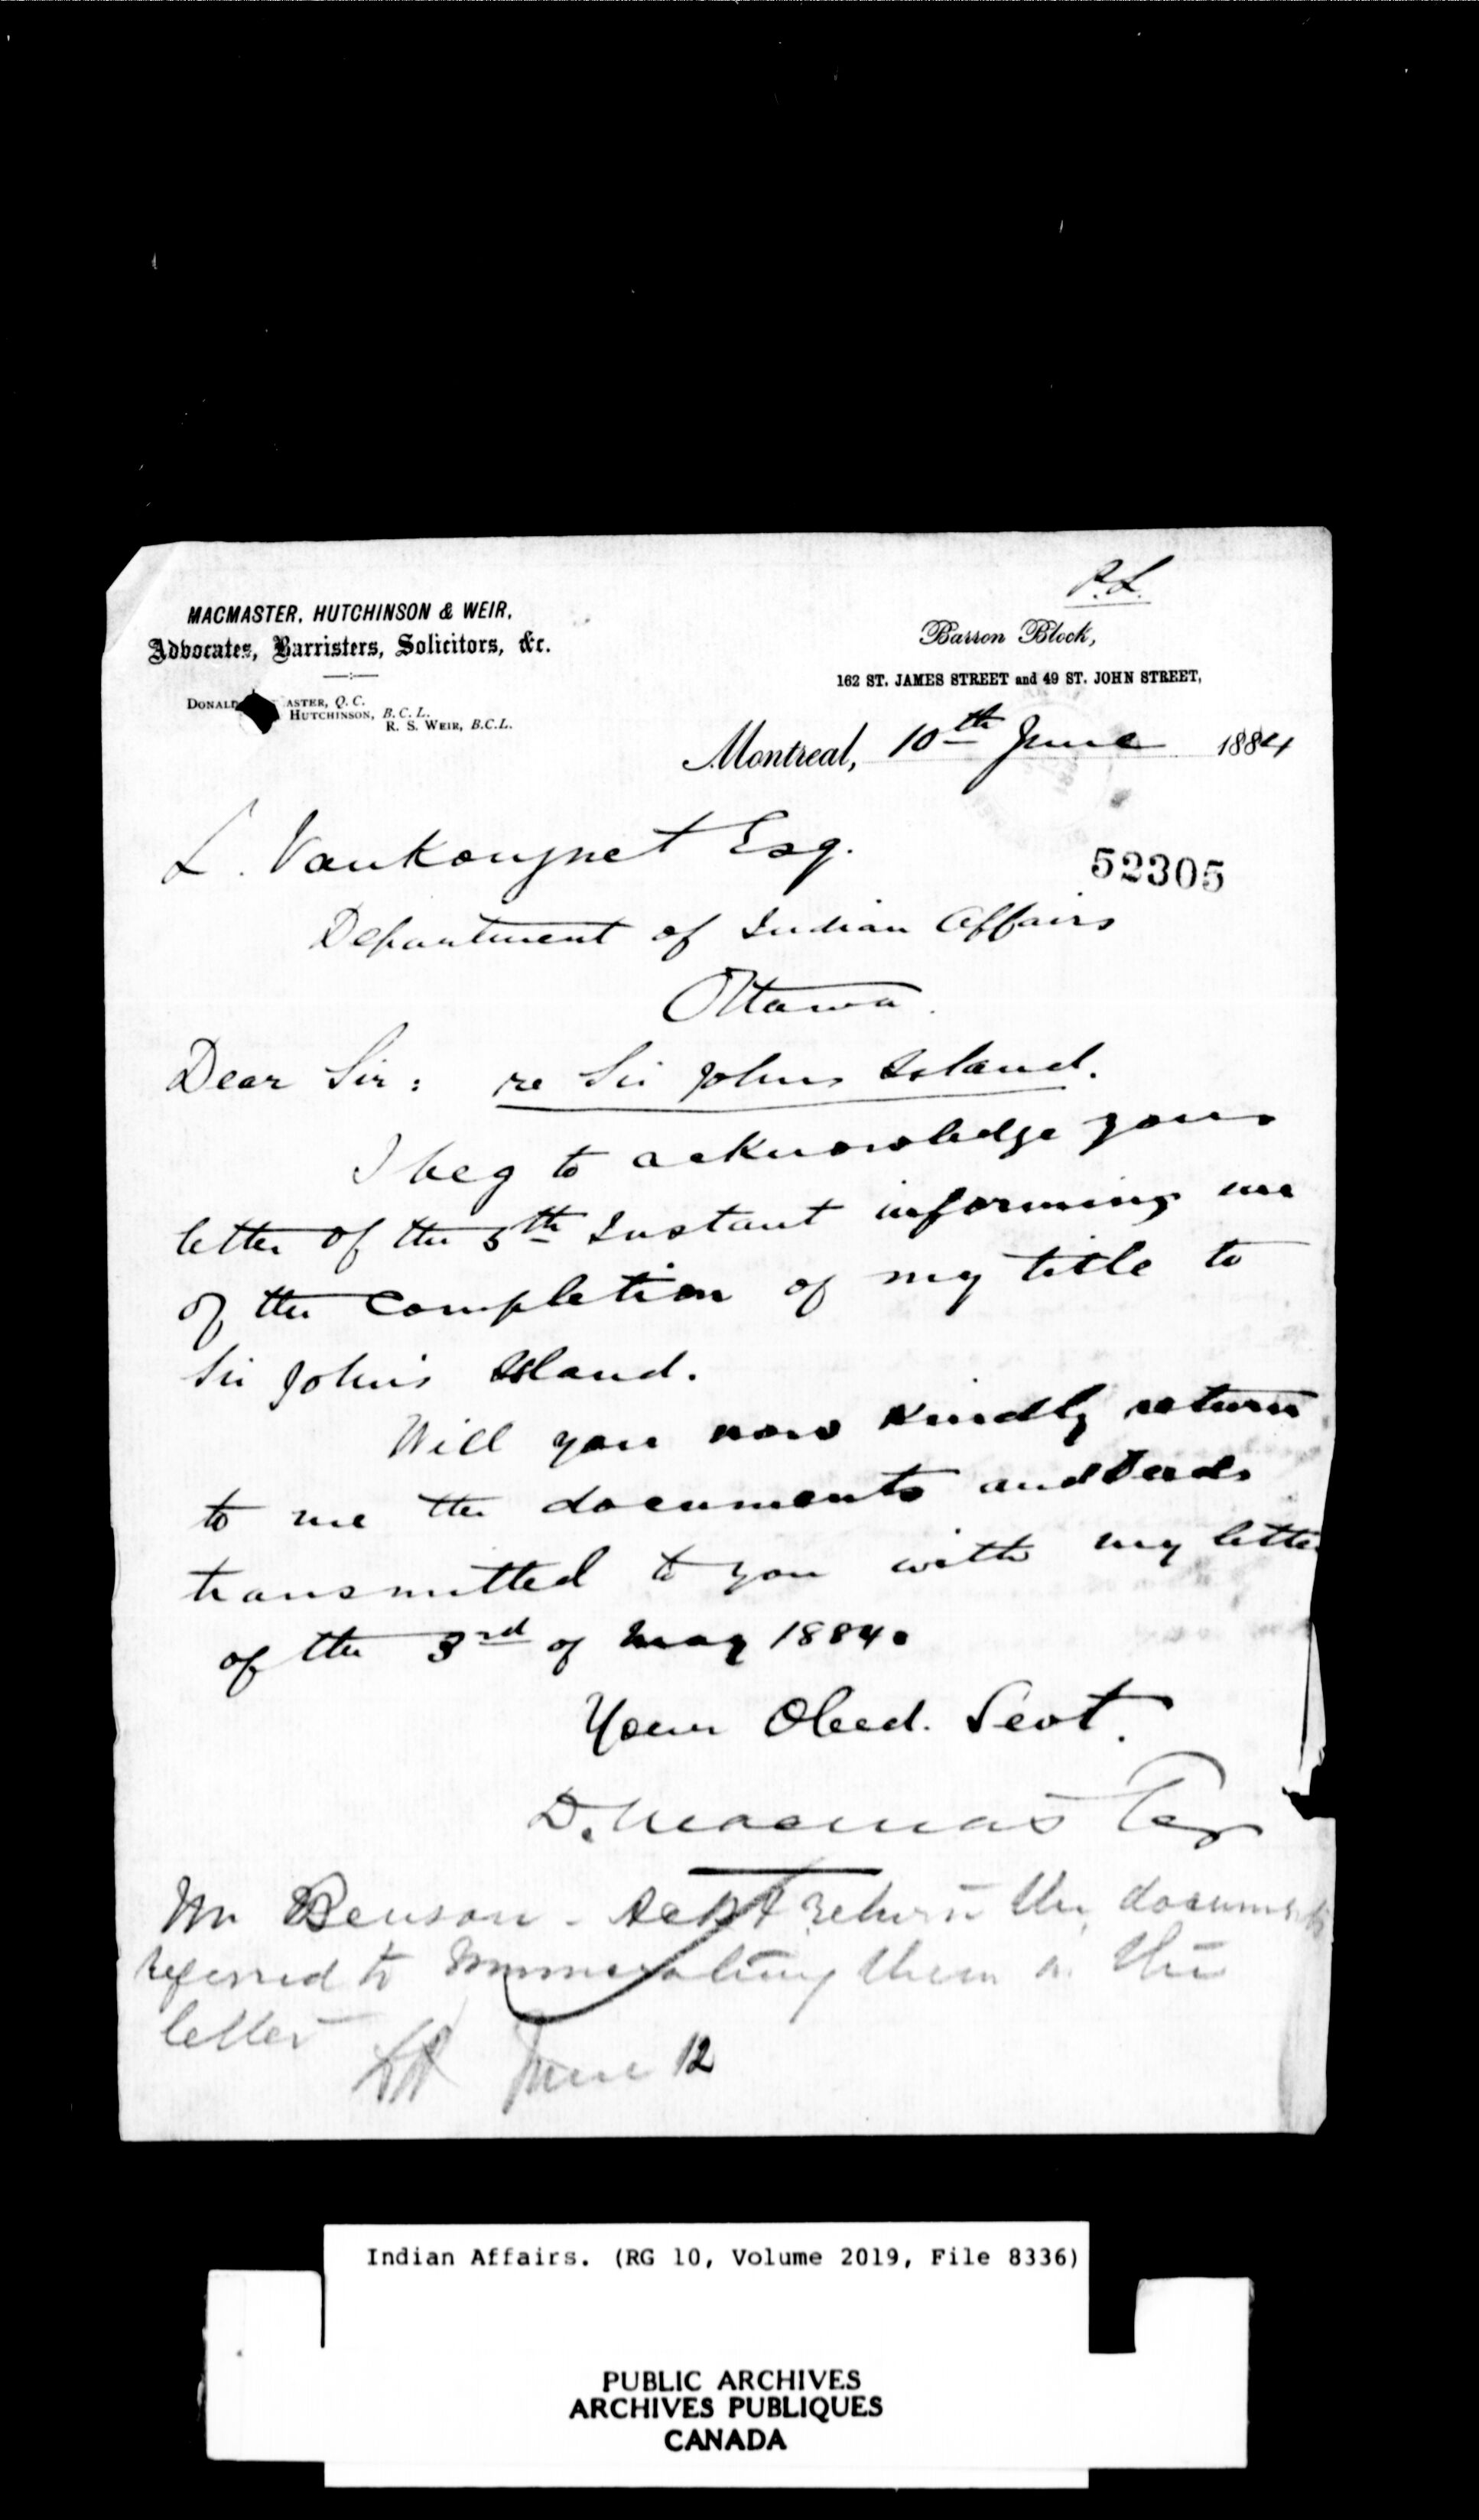 P.L.
MACMASTER, HUTCHINSON & WEIR,
Advocates, Barristers, Solicitors, &c.
Barron Block,
162 ST. JAMES STREET and 49 ST. JOHN STREET,
DONALD ASTER, Q. C.
HUTCHINSON, B. C. L.
R. S. WEIR, B.C.L.
Montreal, 10th June 1884
L. Vankoughnet Esq.
52305
Department of Indian Affairs
Ottawa.
Dear Sir: re Sir Johns Island.
I beg to acknowledge your
letter of the 5th Instant informing me
of the completion of my title to
Sir John's Island.
Will you now kindly return
to me the documents and Deeds
transmitted to you with my letter
of the 3rd of May 1884.
Your Obed. Servt.
D. Macmaster
Mr Benson - return the documents
referred to them in the
letter
June 12
Indian Affairs. (RG 10, Volume 2019, File 8336)
PUBLIC ARCHIVES
ARCHIVES PUBLIQUES
CANADA